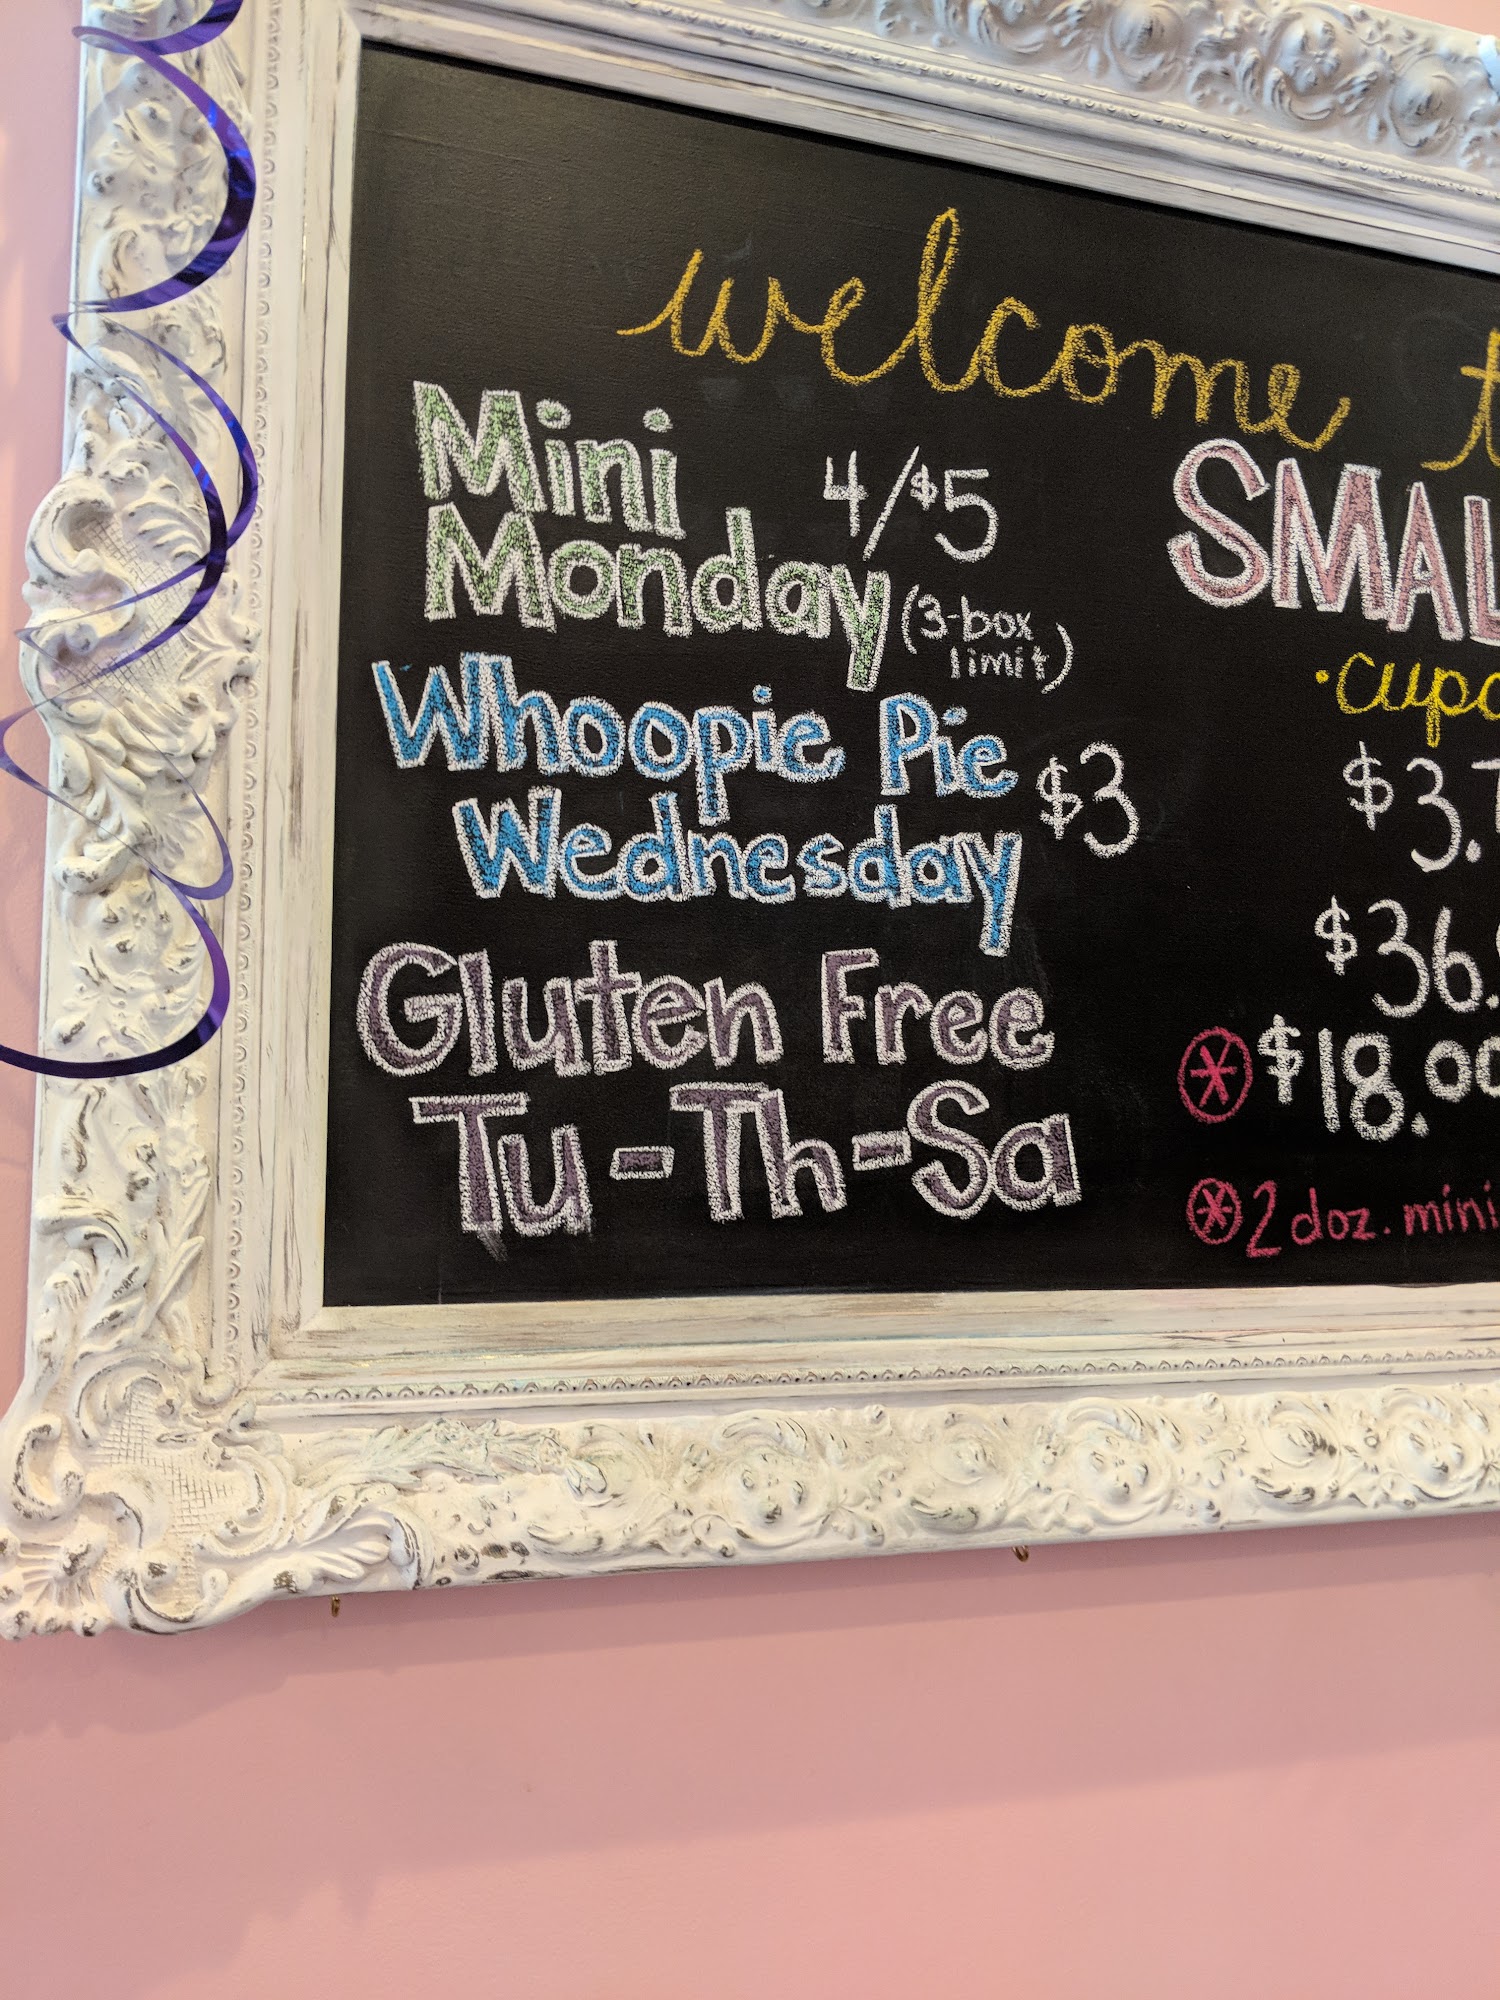 welcome
Mini
Monday 4/$5
(3-box
limit)
Whoopie Pie
Wednesday $3
Gluten Free
Tu-Th-Sa
$18.00
2 doz. mini